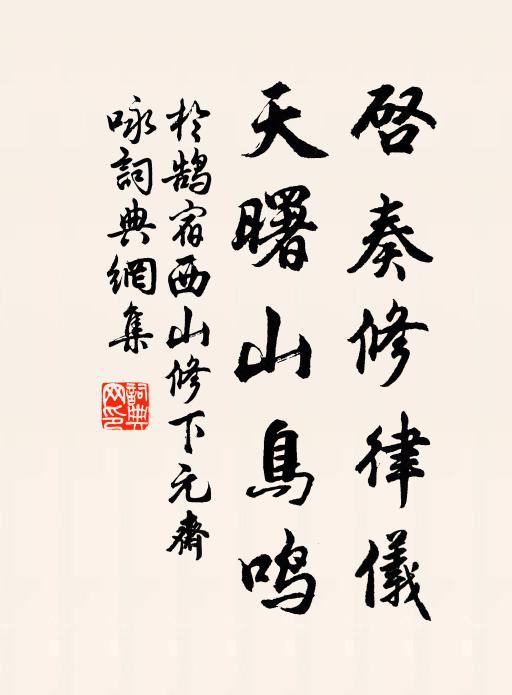 啓奏修律儀
天曙山鳥鸣
於鵠宿西山修下元齋
咏詞典網集
詞典网印